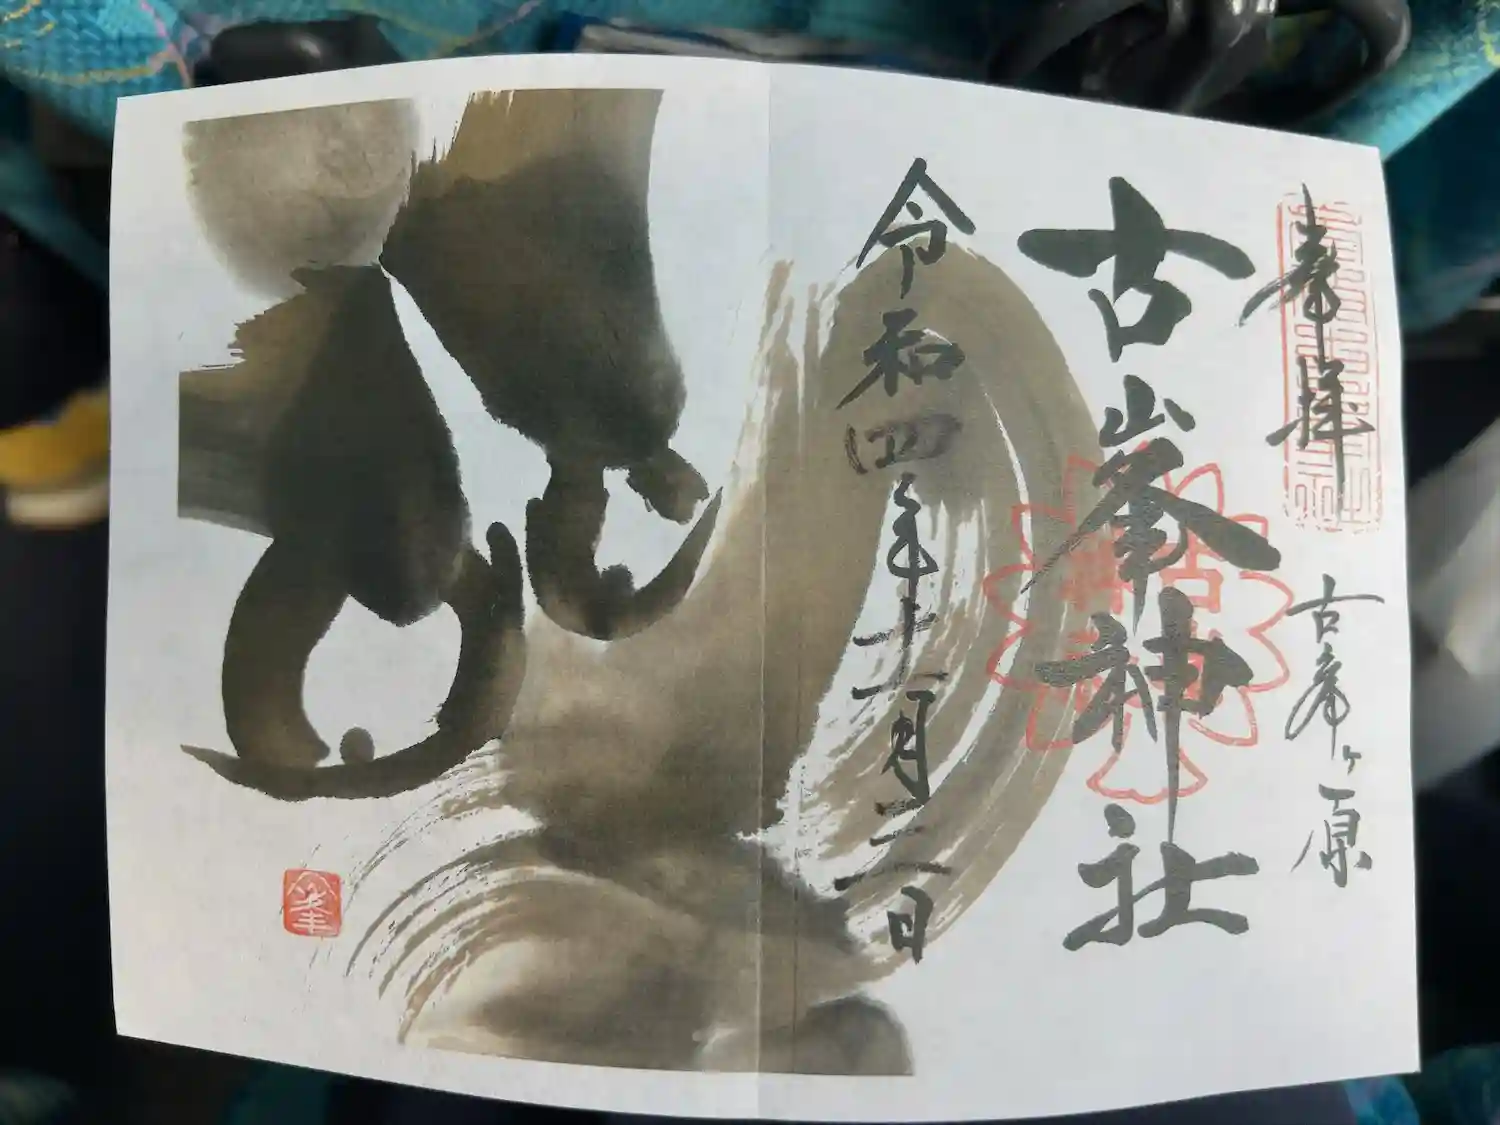 奉拝
古峯ヶ原
古峯神社
令和四年十一月二日